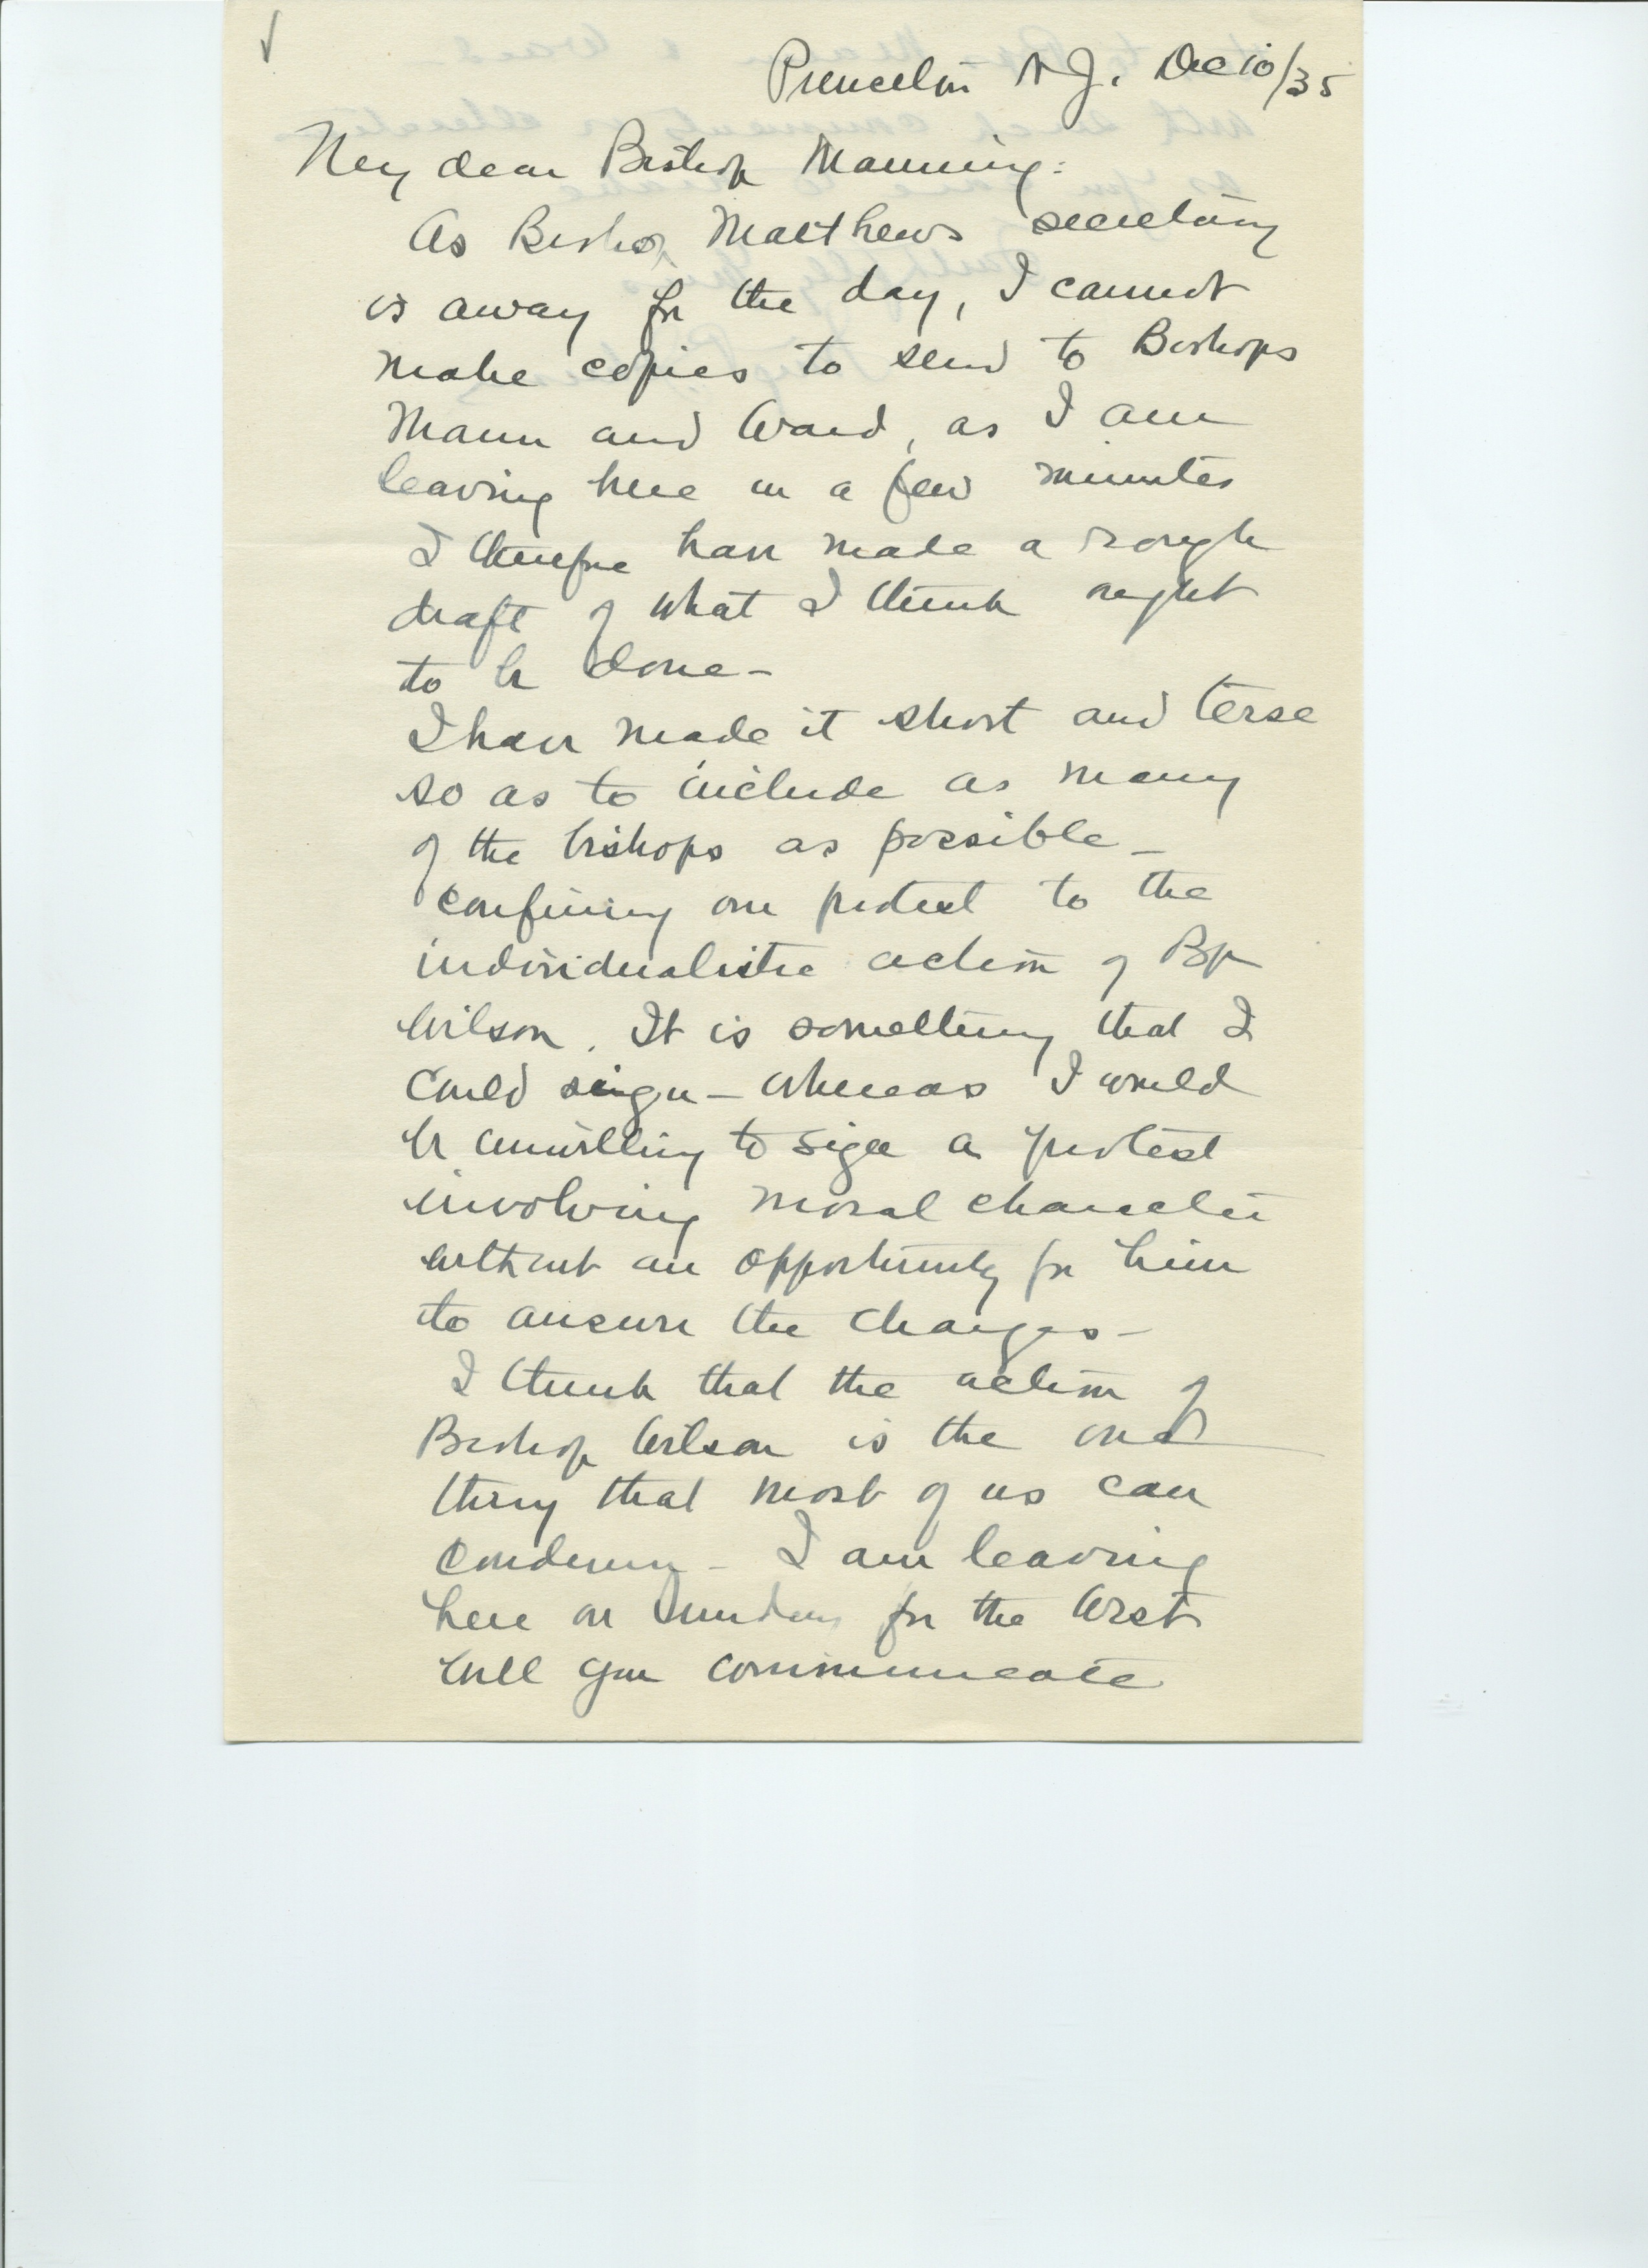 Princeton N J. Dec 10/35
My dear Bishop Manning:
As Bishop Matthews secretary
is away for the day, I cannot
make copies to send to Bishops
Mann and Ward, as I am
leaving here in a few minutes
I therefore have made a rough
draft of what I think ought
to be done -
I have made it short and terse
so as to include as many
of the bishops as possible -
confining our protest to the
individualistic action of Bp
Wilson. It is something that I
could sign - whereas I would
be unwilling to sign a protest
involving moral character
without an opportunity for him
to answer the charges -
I think that the action of
Bishop Wilson is the one
thing that most of us can
condemn - I am leaving
here on for the West
Will you communicate